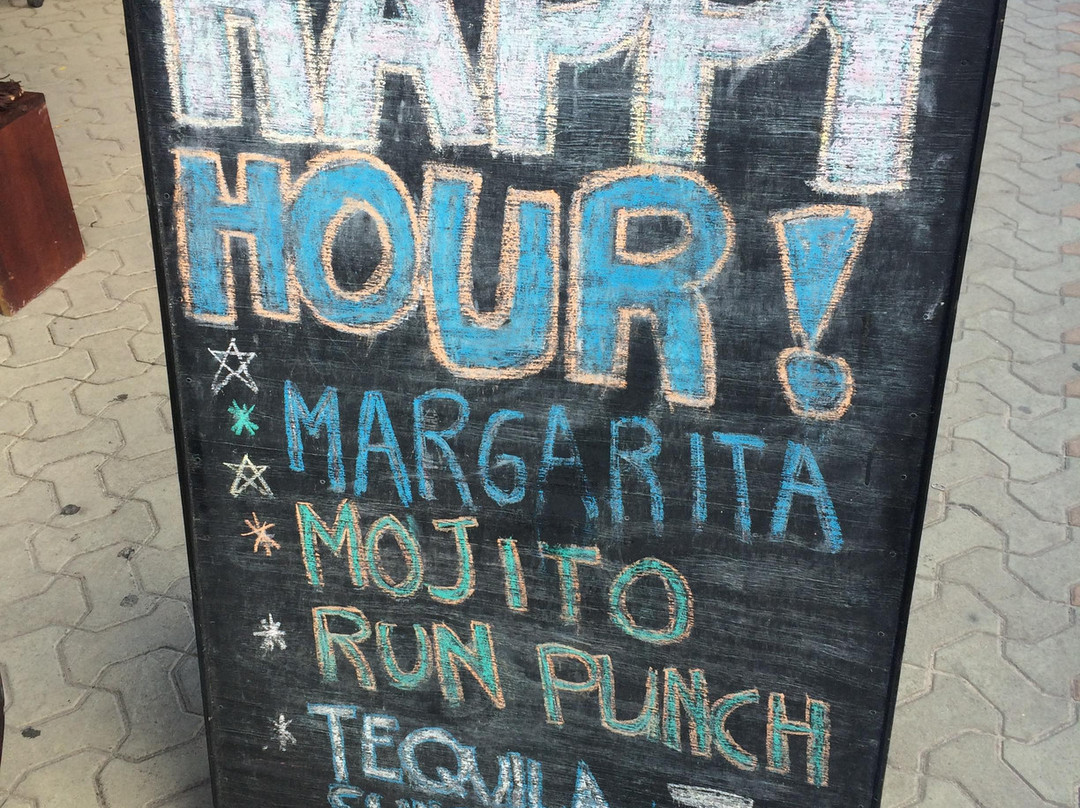 HAPPY
HOUR!
MARGARITA
MOJITO
RUN PUNCH
TEQUILA